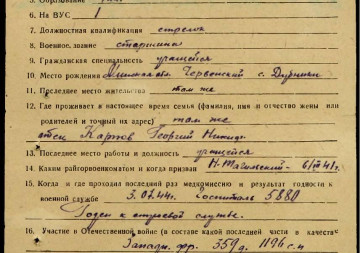 6. На ВУС 1
7. Должностная квалификация стрелок
8. Военное звание старшина
9. Гражданская специальность учащейся
10. Место рождения Червенский с.
11. Последнее место жительства там же
12. Где проживает в настоящее время семья (фамилия, имя и отчество жены или
родителей и точный их адрес) там же
отец Карпов Георгий
13. Последнее место работы и должность учащейся
14. Каким райгорвоенкоматом и когда призван Н-Тагильский
15. Когда и где проходил последний раз медкомиссию и результат годности к
военной службе 3.07.44г. Госпиталь 5880
Годен к строевой службе.
16. Участие в Отечественной войне (в составе какой последней части в качестве
Западн. фр. 359д. 1196 с.п